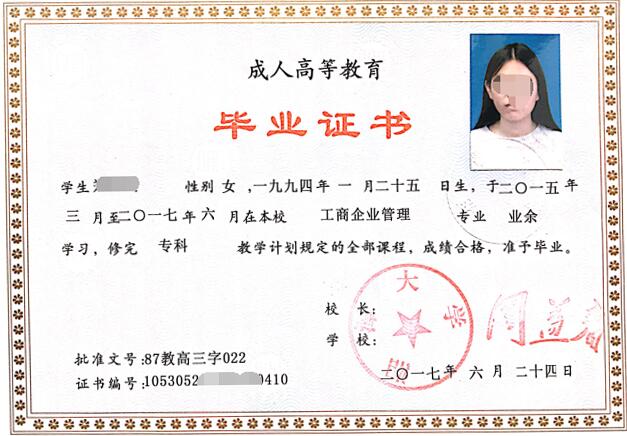 成人高等教育
毕业证书
学生 性别 女 ,一九九四年 一 月二十五 日生，于二〇一五年
三 月至二〇一七年 六 月在本校 工商企业管理 专业 业余
学习，修完 专科 教学计划规定的全部课程，成绩合格，准予毕业。
校 长：
学 校：
大学
批准文号:87教高三字022
证书编号:1053052 0410
二〇一七年 六 月 二十四日